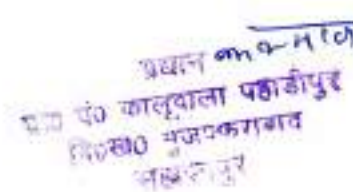 प्रधान
ग्रा0 पं0 कालूवाला पहाडीपुर
वि0ख0 मुजफ्फराबाद
सहारनपुर